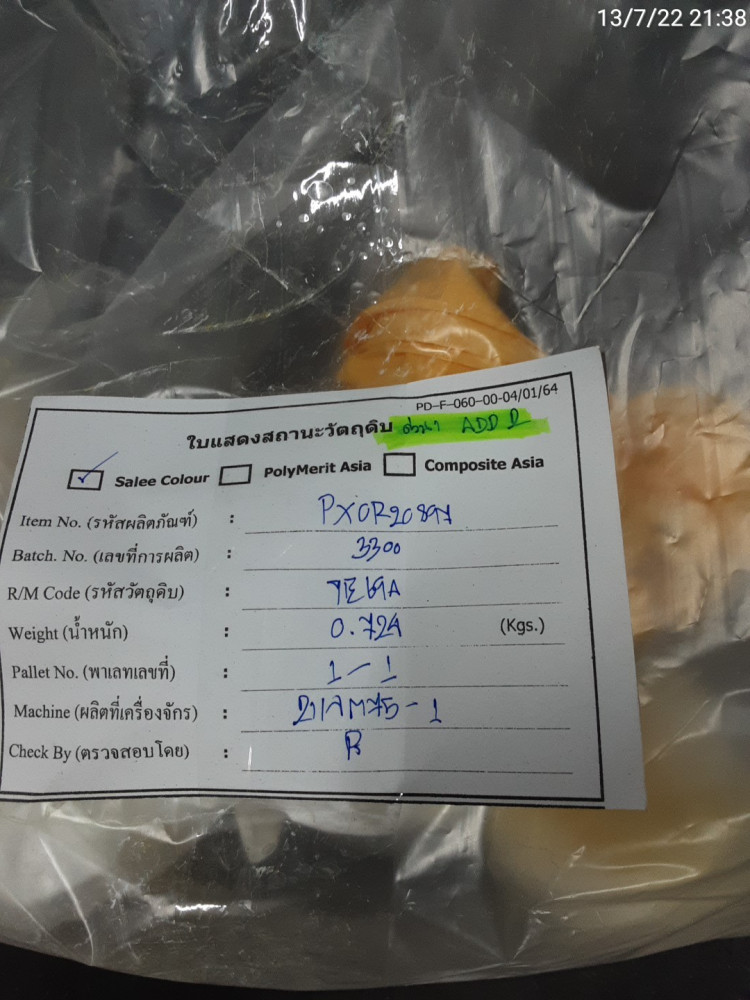 13/7/22 21:38
PD-F-060-00-04/01/64
ใบแสดงสถานะวัตถุดิบ ADD 2
Salee Colour PolyMerit Asia Composite Asia
Item No. (รหัสผลิตภัณฑ์) :
Batch. No. (เลขที่การผลิต) : 3300
R/M Code (รหัสวัตถุดิบ) :
Weight (น้ำหนัก) : 0.724 (Kgs.)
Pallet No. (พาเลทเลขที่) : 1-1
Machine (ผลิตที่เครื่องจักร) :
Check By (ตรวจสอบโดย) :